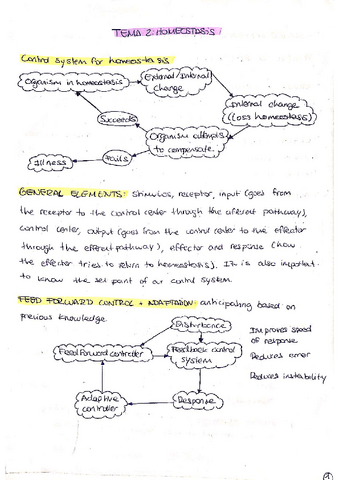 TEMA 2: HOMEOSTASIS
Control system for homeostasis
Organism in homeostasis
External/Internal
change
Internal change
(Loss homeostasis)
Succeeds
Organism attempts
to compensate
Illness
Fails
GENERAL ELEMENTS: stimulus, receptor, input (goes from
the receptor to the control center through the aferent pathway),
control center, output (goes from the control center to the effector
through the eferent pathway), effector and response (how
the effector tries to return to homeostasis). It is also important
to know the set point of our control system.
FEED FORWARD CONTROL + ADAPTATION: anticipating based on
previous knowledge
Disturbance
Improves speed
of response
Feedforward controller
Feedback control
system
Reduces error
Reduces instability
Adaptive
controller
Response
1